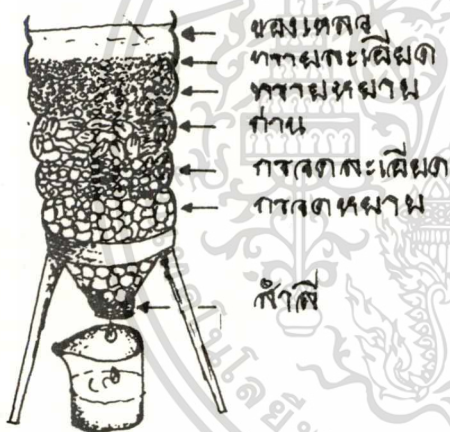 ของเหลว
ทรายละเอียด
ทรายหยาบ
ถ่าน
กรวดละเอียด
กรวดหยาบ
สำลี